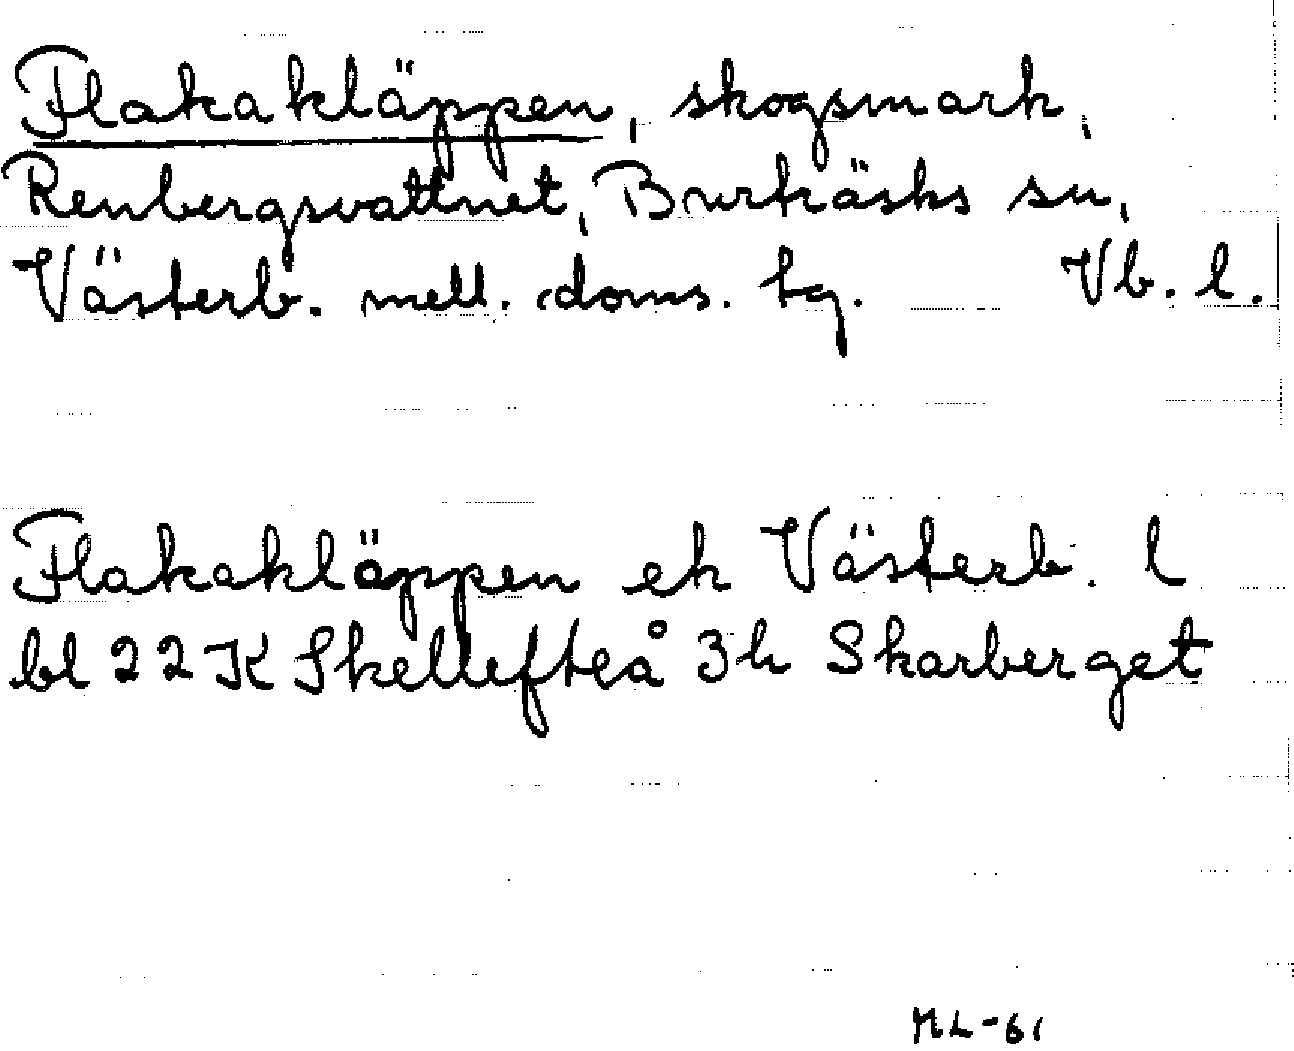 Flakakläppen, skogsmark,
Renbergsvattnet, Burträsks sn,
Västerb. mell. doms. tg. Vb. l.
Flakakläppen ek Västerb. l
bl 22K Skellefteå 3h Skarberget
ML-61